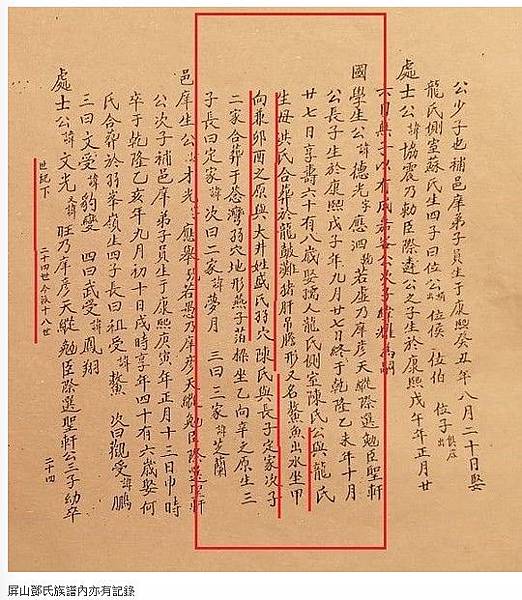 公少子也補邑庠弟子員生于康熙癸丑年八月二十日娶
龍氏側室蘇氏生四子曰位公 位侯 位伯 位子
處士公諱協震乃勅臣際遠公之子生於康熙戊午年正月廿
六日無子以有成
國學生公諱德光字應泗號若虛乃庠彥天縱際選勉臣聖軒
公長子生於康熙戊子年九月廿七日終于乾隆乙未年十月
廿七日享壽六十有八歲娶孺人龍氏側室陳氏公與龍氏
生母洪氏合葬於龍鼓灘猪肝吊膽形又名鰲魚出水坐甲
向兼卯酉之原與大井姓盛氏弱穴陳氏與長子定家次子
二家合葬于忩灣弱穴地形燕子萡樑坐乙向辛之原生三
子長曰定家諱 次曰二家諱夢月 三曰三家諱芝蘭
邑庠生公諱才光字應舉號若愚乃庠彥天縱勉臣際選聖軒
公次子補邑庠弟子員生于康熙庚寅年正月十三日申時
卒于乾隆乙亥年九月初十日戌時享年四十有六歲娶何
氏合葬於弱峯嶺生四子長曰祖受諱鰲 次曰觀受諱鵬
三曰文受諱豹變 四曰武受諱鳳翔
處士公諱文光又諱旺乃庠彥天縱勉臣際選聖軒公三子幼卒
世紀下 二十四世今派十八世
二十四
屏山鄧氏族譜內亦有記錄